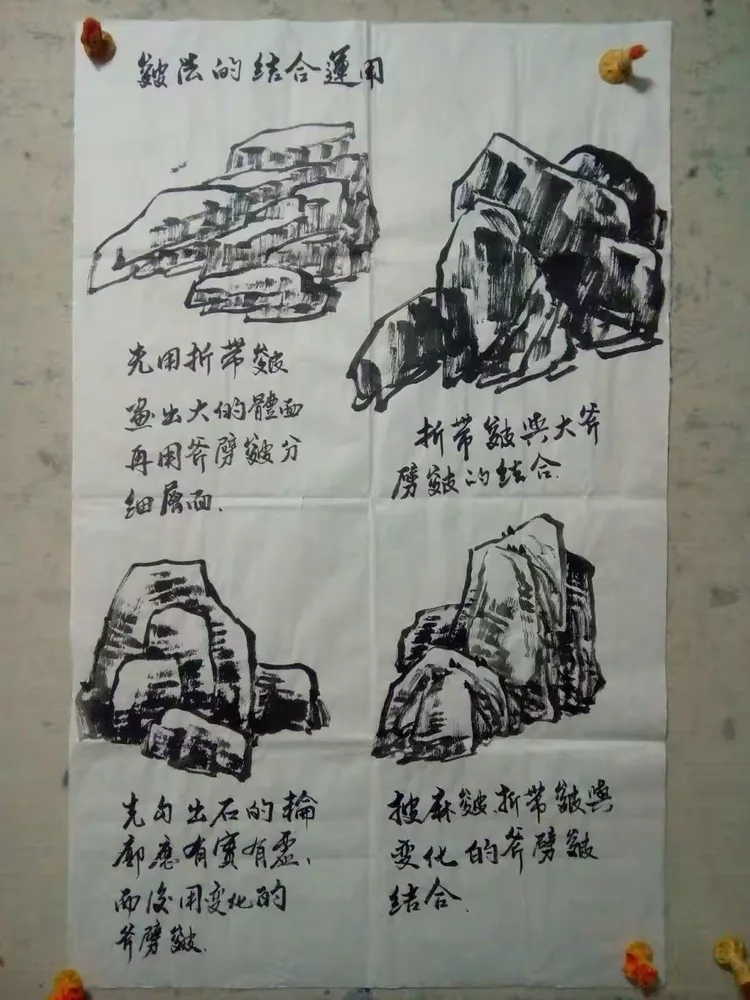 皴法的结合運用
先用折带皴
畫出大的體面
再用斧劈皴分
细層面.
折带皴與大斧
劈皴的结合.
先勾出石的輪
廓應有實有虛、
而後用变化的
斧劈皴.
披麻皴、折带皴與
变化的斧劈皴
结合.